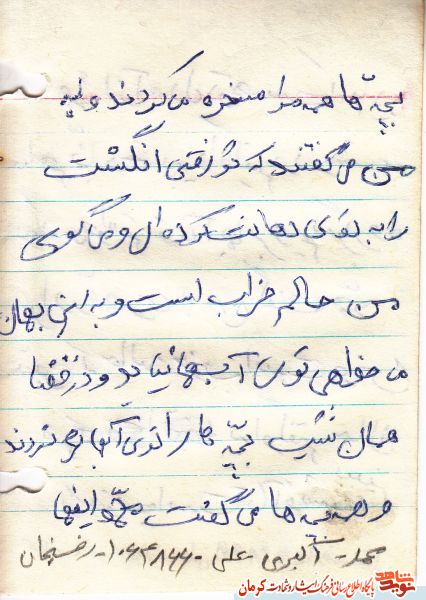 بچّه ها همه مرا مسخره می کردند و به
من می گفتند که تو رفتی انگشت
را به توی دهانت کرده ای و می گویی
من حالم خراب است و به این بهانه
می خواهی توی آب بیایید و در
همان شب بچّه ها را توی آب
و همه ها می گفت
محمد اکبری علی ۱۰۶۴۸۶۶ رفسنجان
نوید شاهد
پایگاه اطلاع رسانی فرهنگ ایثار و شهادت کرمان